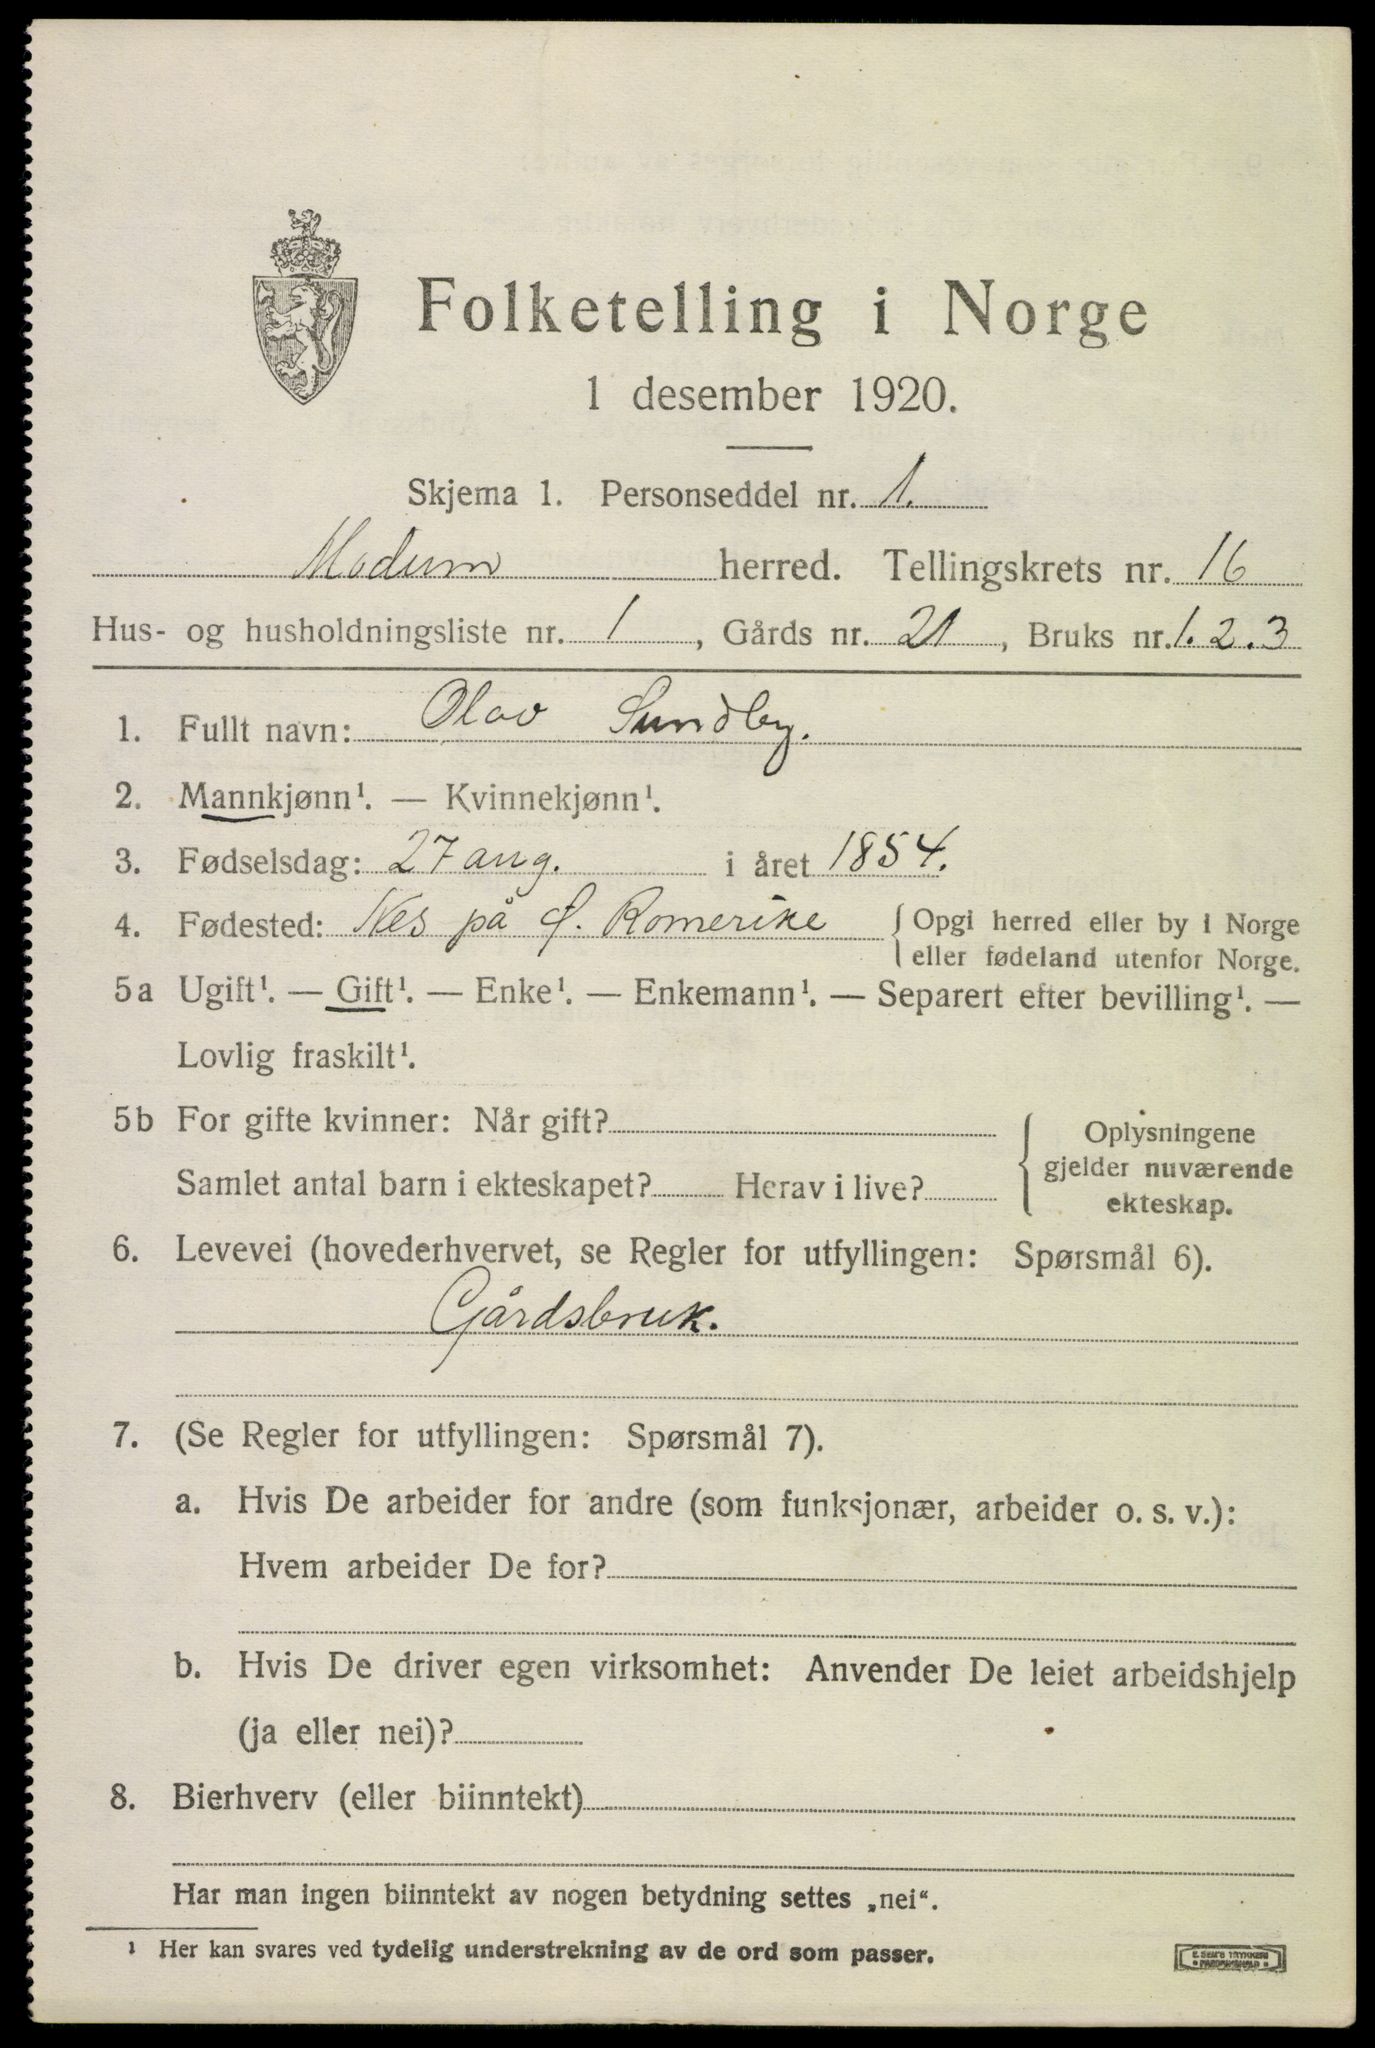 Folketelling i Norge
1 desember 1920.
Skjema 1. Personseddel nr. 1.
Modum herred. Tellingskrets nr. 16
Hus- og husholdningsliste nr. 1, Gårds nr. 21, Bruks nr. 1.2.3
1. Fullt navn: Olav Sundby.
2. Mannkjønn¹. — Kvinnekjønn¹.
3. Fødselsdag: 27 aug. i året 1854.
4. Fødested: Nes på Ø. Romerike { Opgi herred eller by i Norge
eller fødeland utenfor Norge.
5a Ugift¹. — Gift¹. — Enke¹. — Enkemann¹. — Separert efter bevilling¹. —
Lovlig fraskilt¹.
5b For gifte kvinner: Når gift?
Samlet antal barn i ekteskapet? Herav i live?
{ Oplysningene
gjelder nuværende
ekteskap.
6. Levevei (hovederhvervet, se Regler for utfyllingen: Spørsmål 6).
Gårdsbruk.
7. (Se Regler for utfyllingen: Spørsmål 7).
a. Hvis De arbeider for andre (som funksjonær, arbeider o. s. v.):
Hvem arbeider De for?
b. Hvis De driver egen virksomhet: Anvender De leiet arbeidshjelp
(ja eller nei)?
8. Bierhverv (eller biinntekt)
Har man ingen biinntekt av nogen betydning settes „nei“.
¹ Her kan svares ved tydelig understrekning av de ord som passer.
E. SEM'S TRYKKERI